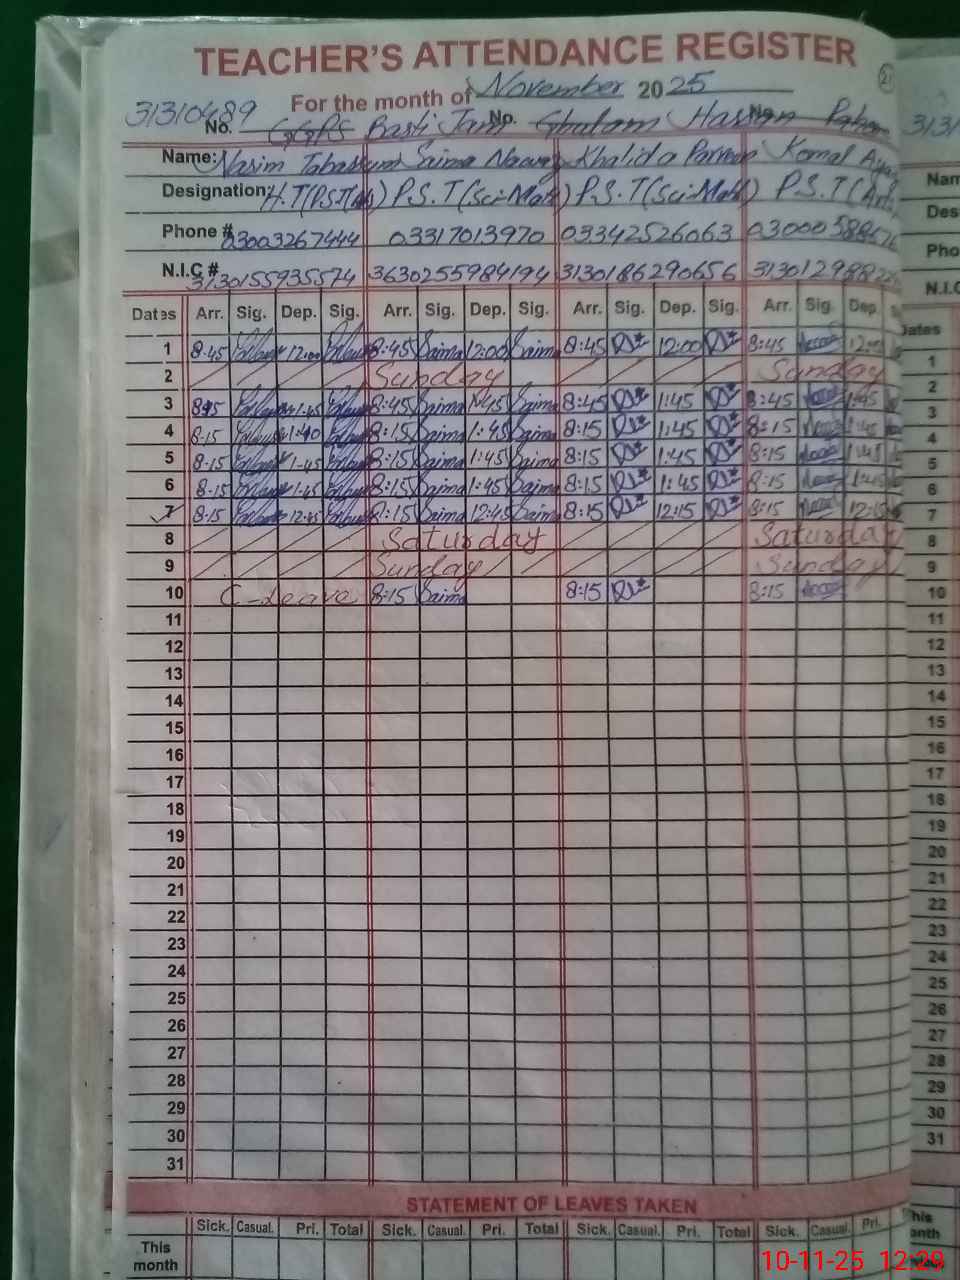 TEACHER'S ATTENDANCE REGISTER
21
For the month of November 2025
31310489 No. GGPS Basti Jam No. Ghulam Hassan No. 313
Name: Nasim Tabassum Saima Nawaz Khalida Parveen Komal Nam
Designation: H.T(P.S.T) P.S.T (Sci-Math) P.S.T (Sci-Math) P.S.T (Arts Des
Phone # 03003267444 03317013970 03342526063 Pho
N.I.C # 3130155935574 3630255984194 3130186290656 N.I.C
Dates Arr. Sig. Dep. Sig. Arr. Sig. Dep. Sig. Arr. Sig. Dep. Sig. Arr. Sig. Dep. Dates
1 8:45 12:00 8:45 Saima 12:00 Saima 8:45 12:00 8:45 12:00 1
2 Sunday Sunday 2
3 8:45 1:45 8:45 Saima 1:45 Saima 8:45 1:45 8:45 1:45 3
4 8:15 1:40 8:15 Saima 1:45 Saima 8:15 1:45 8:15 1:45 4
5 8:15 1:45 8:15 Saima 1:45 Saima 8:15 1:45 8:15 1:45 5
6 8:15 1:45 8:15 Saima 1:45 Saima 8:15 1:45 8:15 1:45 6
7 8:15 12:45 8:15 Saima 12:45 Saima 8:15 12:15 8:15 12:15 7
8 Saturday Saturday 8
9 Sunday Sunday 9
10 C-Leave 8:15 Saima 8:15 8:15 10
11 11
12 12
13 13
14 14
15 15
16 16
17 17
18 18
19 19
20 20
21 21
22 22
23 23
24 24
25 25
26 26
27 27
28 28
29 29
30 30
31 31
STATEMENT OF LEAVES TAKEN
Sick. Casual. Pri. Total Sick. Casual. Pri. Total Sick. Casual. Pri. Total Sick. Casual. Pri.
This month
10-11-25 12:29